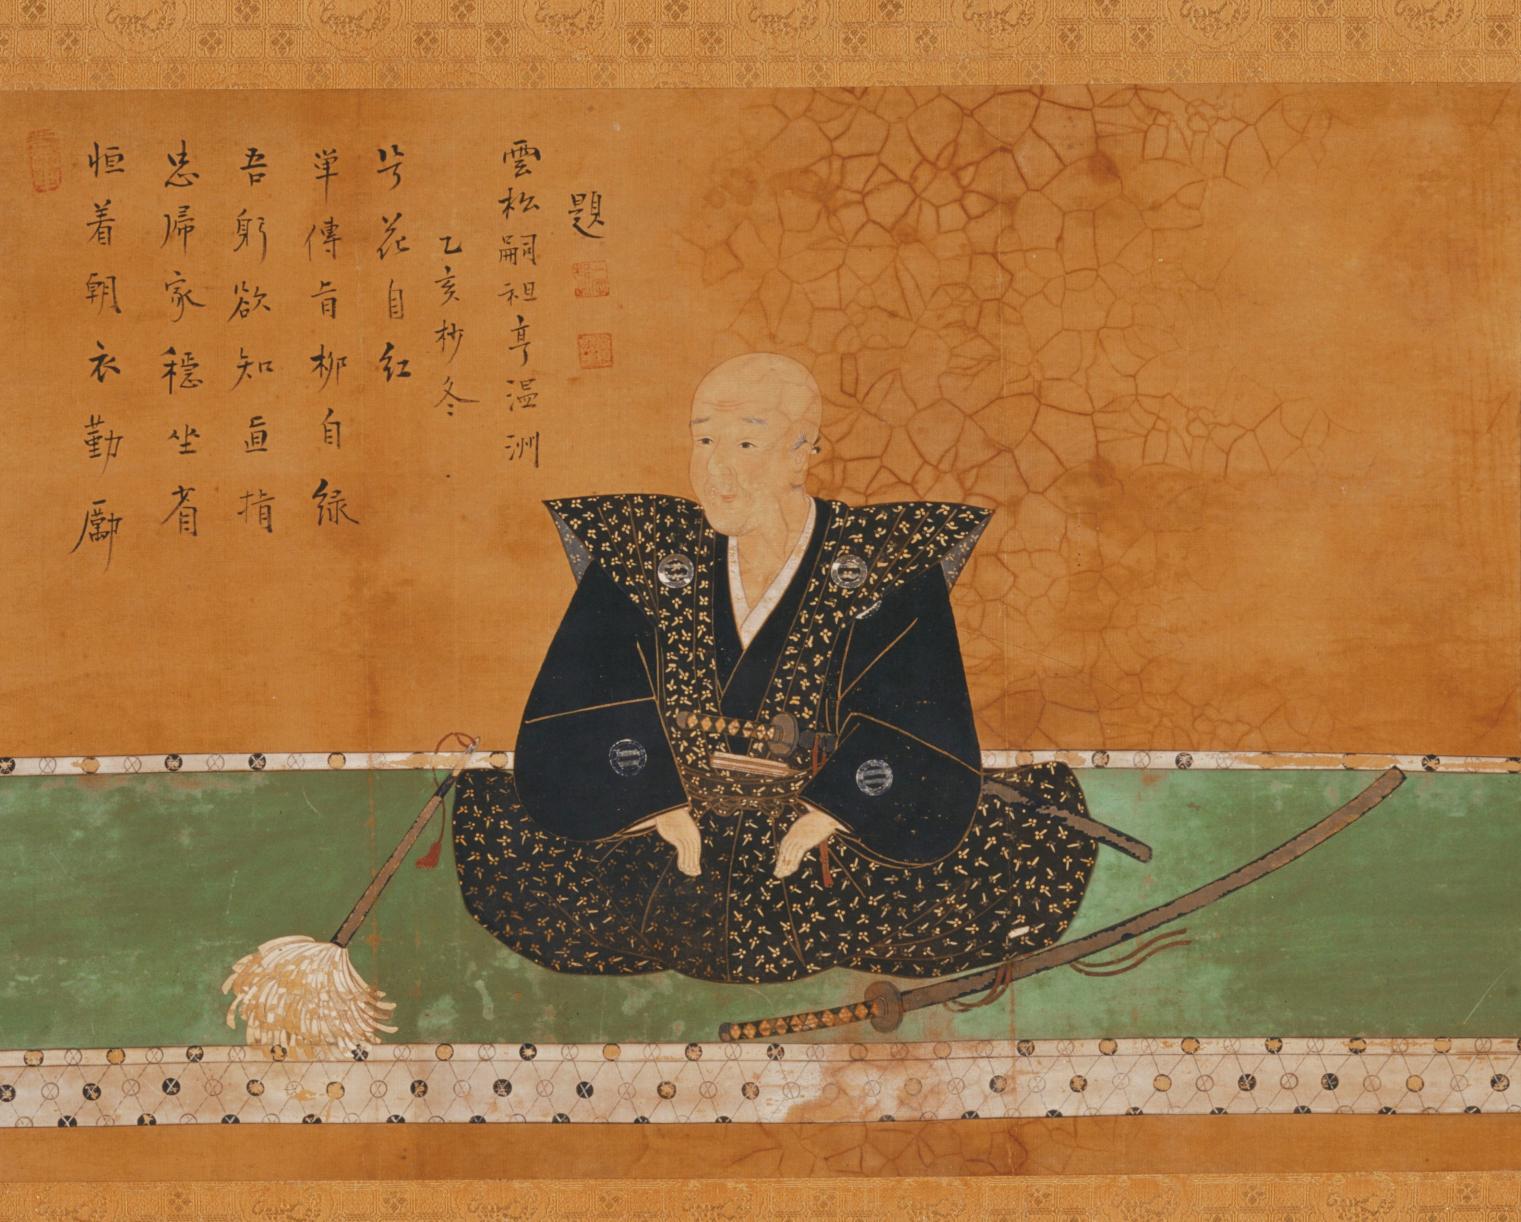 恒着朝衣勤勵
忠帰家穏坐省
吾躬欲知直指
単傳旨柳自緑
兮花自紅
乙亥杪冬
雲松嗣祖亨温洲
題